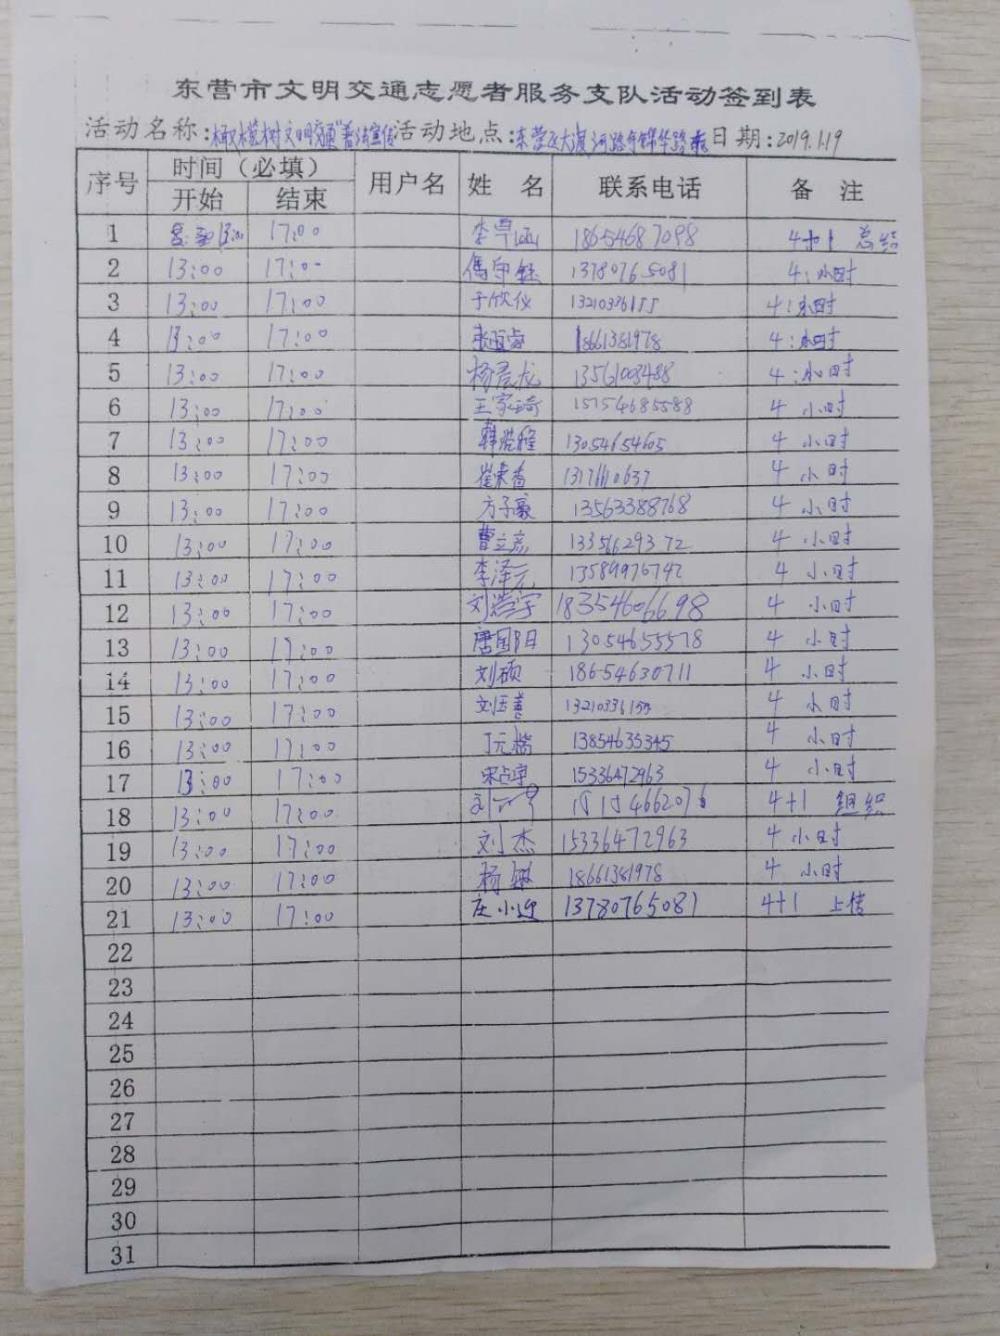 东营市文明交通志愿者服务支队活动签到表
活动名称:橄榄树文明交通 普法宣传 活动地点:东营区大渡河路与 华路 日期:2019.1.19
序号 时间(必填) 用户名 姓 名 联系电话 备 注
开始 结束
1 13:00 17:00 18654687098 4+1 总结
2 13:00 17:00 13780765081 4:小时
3 13:00 17:00 于欣仪 13210336155 4:小时
4 13:00 17:00 18661381978 4:小时
5 13:00 17:00 杨君龙 13561003488 4:小时
6 13:00 17:00 王家琦 15154685588 4 小时
7 13:00 17:00 13054654605 4 小时
8 13:00 17:00 4 小时
9 13:00 17:00 方子豪 13563388768 4 小时
10 13:00 17:00 曹立彦 13356629372 4 小时
11 13:00 17:00 李泽元 13589976742 4 小时
12 13:00 17:00 刘浩宇 18354606698 4 小时
13 13:00 17:00 唐国阳 13054655578 4 小时
14 13:00 17:00 刘硕 18654630711 4 小时
15 13:00 17:00 4 小时
16 13:00 17:00 丁元楷 13854635345 4 小时
17 13:00 17:00 宋占宇 15336472963 4 小时
18 13:00 17:00 4+1 组织
19 13:00 17:00 刘杰 15336472963 4 小时
20 13:00 17:00 杨 18661381978 4 小时
21 13:00 17:00 庄小迎 13780765081 4+1 上传
22
23
24
25
26
27
28
29
30
31